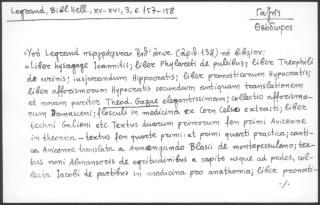 Legrand, Bibl. Hell., XV-XVI, 3, σ. 157-158
Γαζῆς
Θεόδωρος
Ὑπὸ Legrand περιγράφεται ὑπ' ἀριθ. 138) τὸ βιβλίον:
«Liber hysagoge Ioannitii; liber Phylareti de pulsibus; liber Theophili
de urinis; iusjurandum Hippocratis; liber pronosticorum Hippocratis;
liber afforismorum Hyppocratis secundum antiquam translationem
et novam pariter Theod. Gazae elegantissimam; collectio afforismo-
rum Damasceni; flosculi in medicina ex Corn. Celso extracti; liber
techni Galieni etc Textus duarum primarum fen primi Avicenne
in theorica, — textus fen quarte primi: et primi quarti practica; canti-
ca Avicenne translata a Armengando Blasii de montepessulano; tex-
tus noni Almansoris de egritudinibus a capite usque ad pedes, col-
lecta Jacobi de partibus in medicina pro anathomia; liber pronosti-
·/.